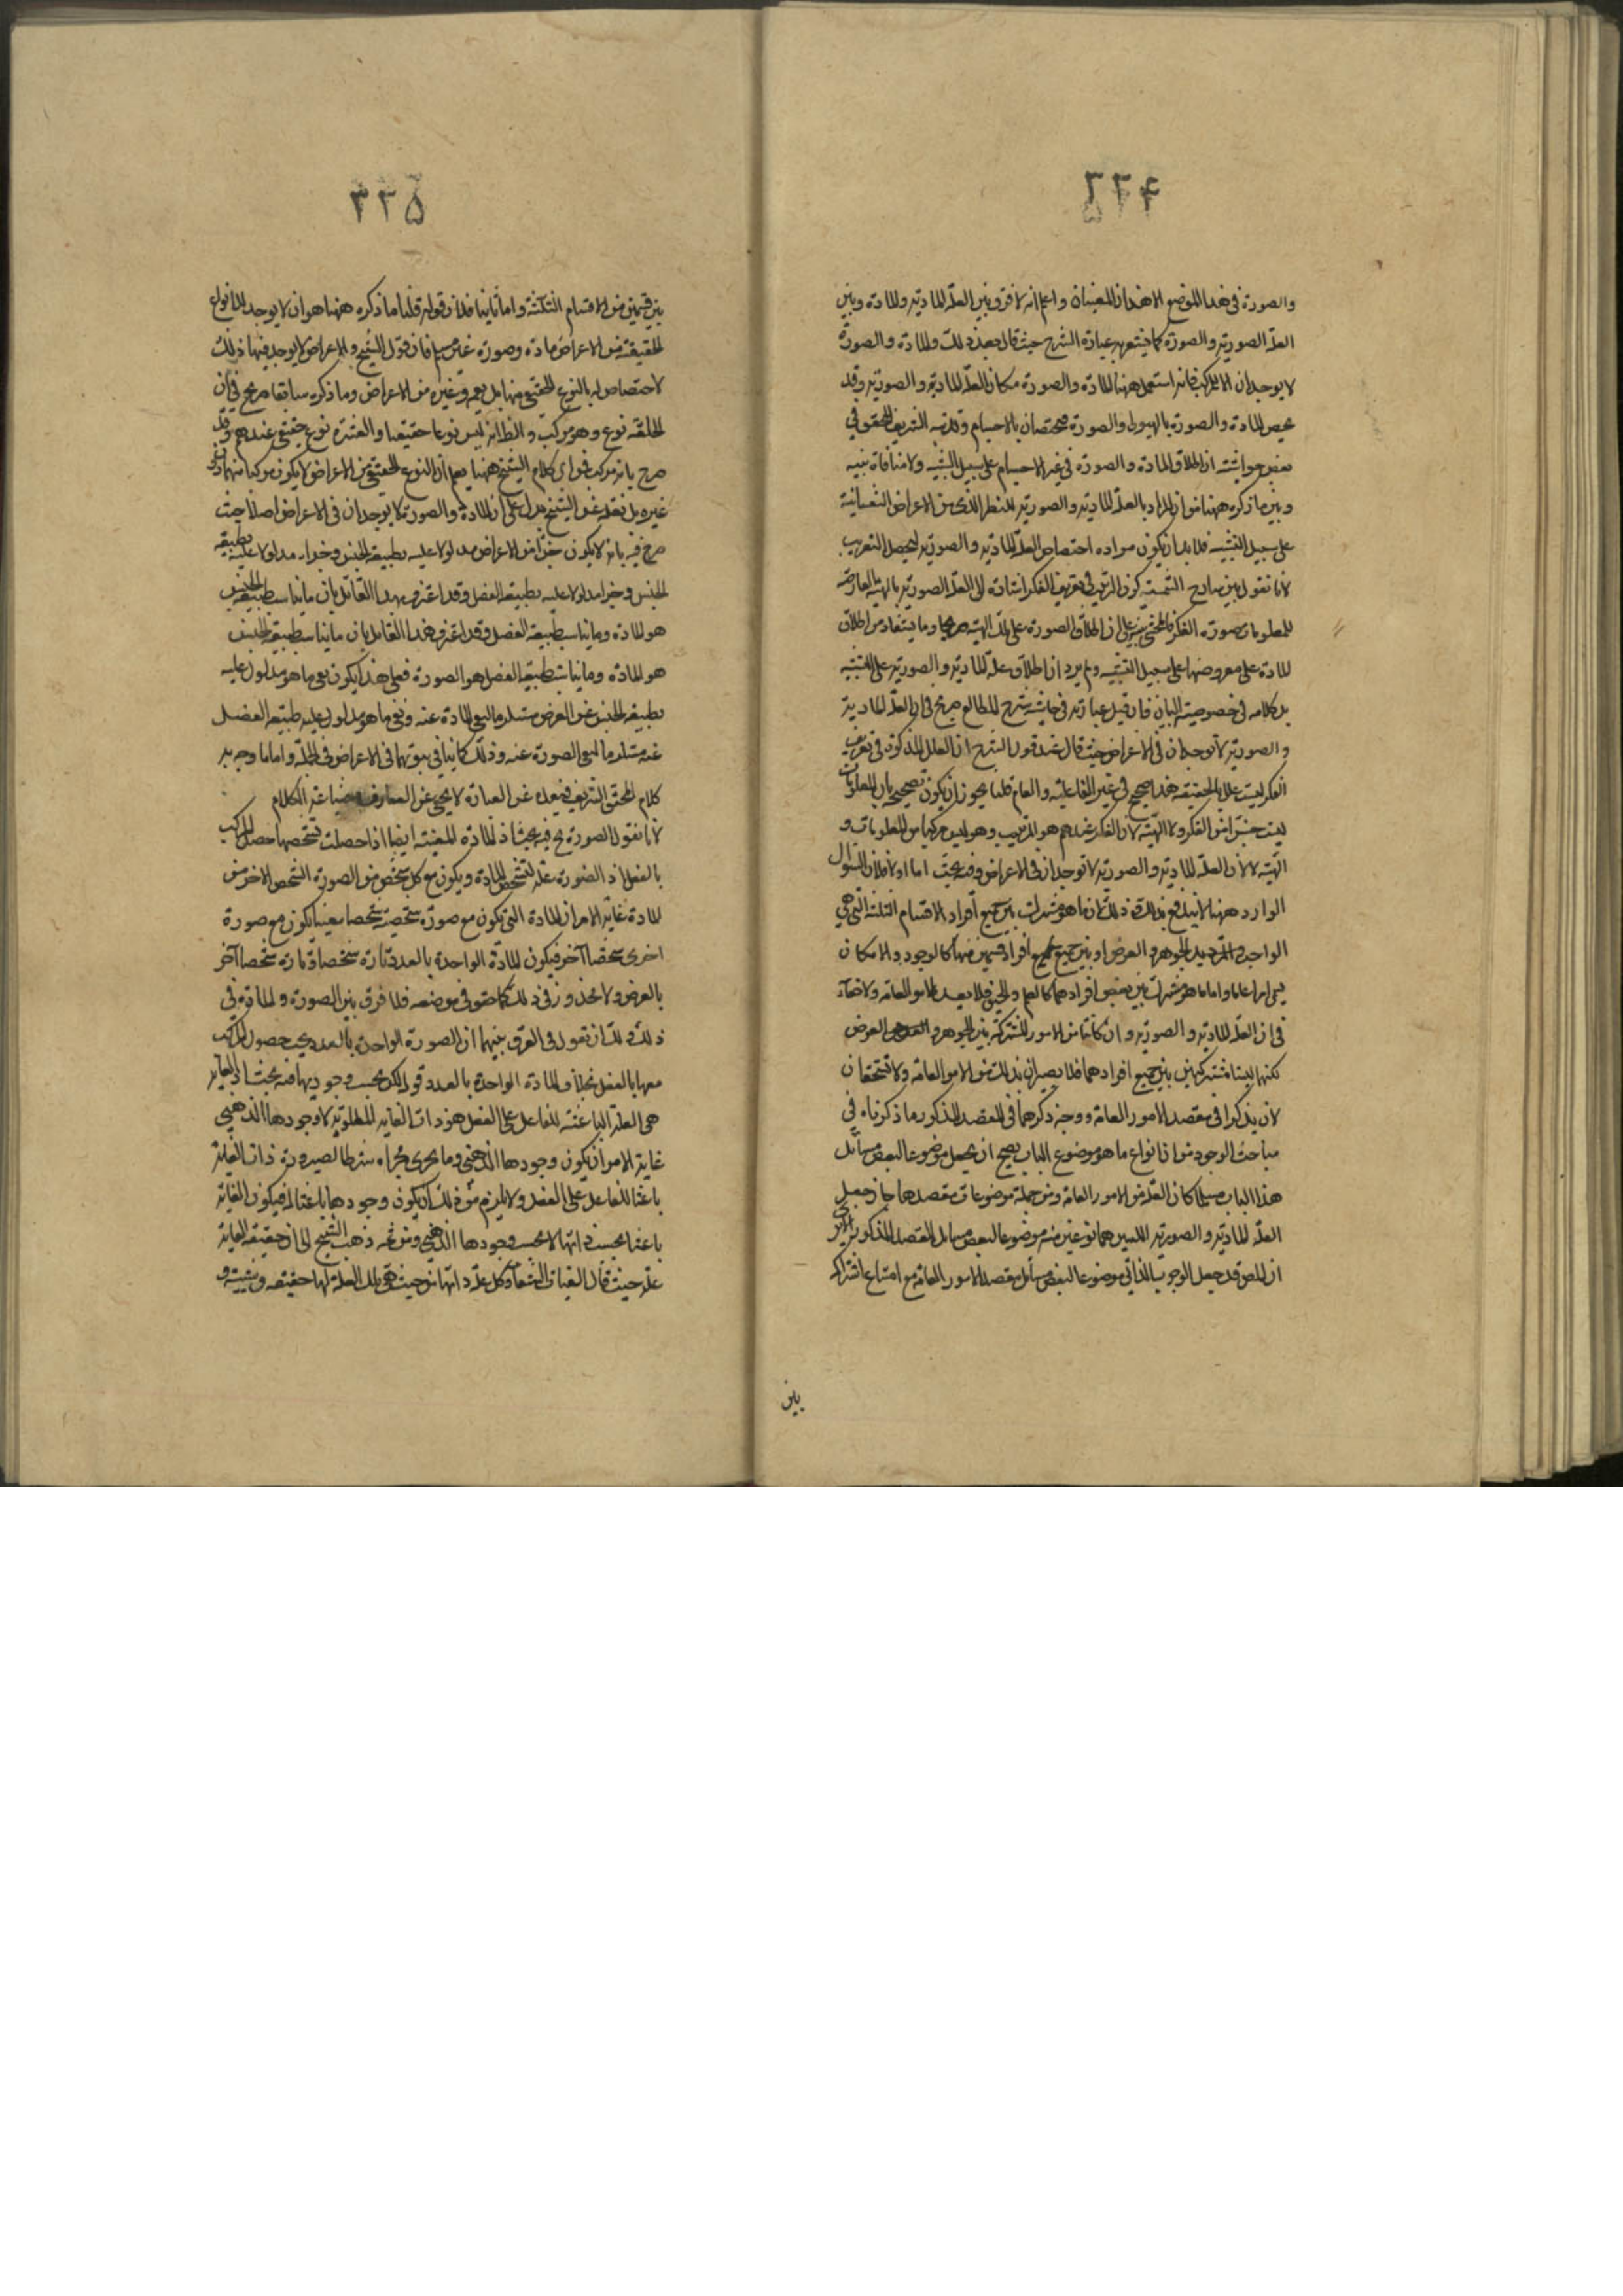 والصورة فى هذا الموضع الا هذان المعنيان واعلم انه لا فرق بين العلة المادية والمادة وبين
العلة الصورية والصورة كما يشعر به عبارة الشرح حيث قال بعد ذلك والمادة والصورة
لا يوجدان الا للمركب فانه استعمل ههنا المادة والصورة مكان العلة المادية والصورية وقد
يخص المادة والصورة بالهيولى والصورة مختصان بالاجسام وقد نبه الشريف المحقق فى
بعض حواشيه ان اطلاق المادة والصورة فى غير الاجسام على سبيل التشبيه ولا منافاة بينه
وبين ما ذكره ههنا من ان المراد بالعلة المادية والصورية للنظر الذى من الاعراض النفسانية
على سبيل التشبيه فلا بد ان يكون مراده اختصاص العلة المادية والصورية ليحصل التقريب
لانا نقول بين شارح الشمسية كون الترتيب فى تعريف الفكر اشارة الى العلة الصورية بالهيئة العارضة
للمعلومات صورة الفكر فالمحشى نبه على ان اطلاق الصورة على تلك الهيئة وما يستفاد من اطلاق
المادة على معروضها على سبيل التشبيه ولم يرد ان اطلاق علة المادية والصورية على التشبيه
بل كلامه فى خصوصية البيان فان قيل عبارته فى حاشية شرح المطالع صريح فى ان العلة المادية
والصورية لا توجدان فى الاعراض حيث قال عند قول الشرح ان العلل المذكورة فى تعريف
الفكر ليست عللا بالحقيقة هذا صحيح فى غير الفاعلية والعام قلنا يجوز ان يكون تصحيحه بان المعلومات
ليست جزءا من الفكر ولا الهيئة لان الفكر عندهم هو الترتيب وهو ليس مركبا من المعلومات و
الهيئة لا لان العلة المادية والصورية لا توجدان فى الاعراض وفيه بحث اما اولا فلان السؤال
الوارد ههنا لا يندفع بذلك وذلك ان ما هو مشترك بين جميع افراد الاقسام الثلثة التى هى
الواجب والجوهر والعرض او بين جميع افراد قسمين منها كالوجود والامكان
يسمى امرا عاما واما ما هو مشترك بين بعض افرادهما كالعلم والحيوة فلا يعد من الامور العامة ولا خفاء
فى ان العلة المادية والصورية وان كانتا من الامور المشتركة بين الجوهر والعرض
لكنهما ليستا مشتركتين بين جميع افرادهما فلا يصيران بذلك من الامور العامة ولا تستحقان
لان يذكرا فى مقصد الامور العامة ووجه ذكرهما فى المقصد المذكور ما ذكرناه فى
مباحث الوجود من ان انواع ما هو موضوع الباب يصح ان يجعل موضوعا لبعض مسائل
هذا الباب فلما كان العلة من الامور العامة ومن جملة موضوعات مقصدها جاز جعل
العلة المادية والصورية اللتين هما نوعين منه موضوعا لبعض مسائل المقصد المذكور
ان المص قد جعل الوجوب الذاتى موضوعا لبعض مسائل مقصد الامور العامة مع امتناع اشتراكه
بين
٣٣٥
بين قسمين من الاقسام الثلثة واما ثانيا فلان قوله قلنا ما ذكره ههنا هو ان لا يوجد للانواع
الحقيقية من الاعراض مادة وصورة غير مسلم فان قول الشيخ والاعراض لا يوجد فيها ذلك
لا اختصاص له بالنوع الحقيقى منها بل يعمه وغيره من الاعراض وما ذكره سابقا صريح فى ان
الخلقة نوع وهو مركب والظاهر انه ليس نوعا حقيقيا والعشرة نوع حقيقى عندهم وقد
صرح بانه مركب فواى كلام الشيخ ههنا يعلم ان النوع الحقيقى من الاعراض لا يكون مركبا منهما دون
غيره بل نقله عن الشيخ يدل على ان المادة والصورة لا يوجدان فى الاعراض اصلا حيث
صرح فيه بانه لا يكون جزء من الاعراض مدلولا عليه بطبيعة الجنس وجزء مدلولا عليه بطبيعة
الجنس وجزء مدلولا عليه بطبيعة الفصل وقد اعترف بهذا القائل بان ما يناسب طبيعة الجنس
هو المادة وما يناسب طبيعة الفصل وقد اعترف هذا القايل بان ما يناسب طبيعة الجنس
هو المادة وما يناسب طبيعة الفصل هو الصورة فعلى هذا يكون نفى ما هو مدلول عليه
بطبيعة الجنس عن العرض مستلزما لنفى المادة عنه ونفى ما هو مدلول عليه طبيعة الفصل
عنه مستلزما لنفى الصورة عنه وذلك كاف فى ثبوتهما فى الاعراض فى الجملة واما ما وجه به
كلام المحقق الشريف فبعده عن العبارة لا يخفى عن العارف بصياغة الكلام
لانا نقول الصورة ح فيه بحث اذ المادة المعينة ايضا اذا حصلت بتشخصها حصل المركب
بالفعل اذ الصورة علة لتشخص المادة ويكون مع كل شخص من الصورة الشخص الاخر من
المادة غاية الامر ان المادة التى تكون مع صورة شخصية شخصا معينا يكون مع صورة
اخرى شخصا آخر فيكون المادة الواحدة بالعدد تارة شخصا وتارة شخصا آخر
بالعرض ولا محذور فى ذلك كما حقق فى موضعه فلا فرق بين الصورة والمادة فى
ذلك ولك ان تقول فى الفرق بينهما ان الصورة الواحدة بالعدد يجب حصول المركب
معها بالفعل بخلاف المادة الواحدة بالعدد قوله لكن بحسب وجودها فيه بحث اذ الغاية
هى العلة الباعثة للفاعل على الفعل هو ذات الغاية المطلوبة لا وجودها الذهنى
غاية الامر ان يكون وجودها الذهنى وما يجرى مجراه شرطا لصيرورة ذات الغاية
باعثا للفاعل على الفعل ولا يلزم من ذلك ان يكون وجودها باعثا له فيكون الغاية
باعثا بحسب ذاتها لا بحسب وجودها الذهنى ومن ثمه ذهب الشيخ الى ان حقيقة الغاية
علة حيث قال فى الهيات الشفاء وكل علة ذاتها من حيث هى تلك العلة لها حقيقة وشيئية و